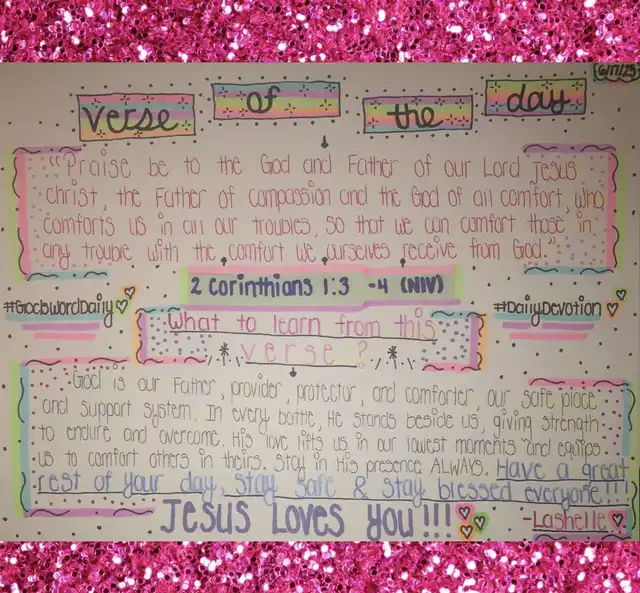 6/17/25
verse of the day
"Praise be to the God and Father of our Lord Jesus
christ, the Father of compassion and the God of all comfort, who
comforts us in all our troubles, so that we can comfort those in
any trouble with the comfort we ourselves receive from God."
2 corinthians 1:3 -4 (NIV)
#GodsWordDaily
#DailyDevotion
What to learn from this
verse?
God is our Father, provider, protector, and comforter, our safe place
and support system. In every battle, He stands beside us, giving strength
to endure and overcome. His love lifts us in our lowest moments and equips
us to comfort others in theirs. Stay in His presence ALWAYS. Have a great
rest of your day, stay safe & stay blessed everyone!!!
Jesus Loves You!!!
-Lashelle